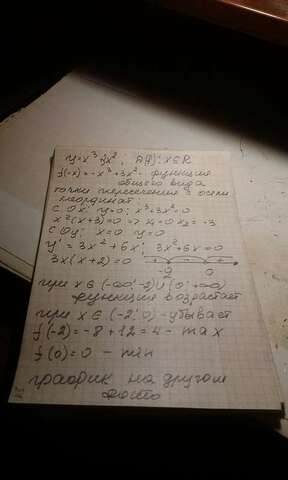 y=x³+3x²; D(f): x∈R
f(-x)=-x³+3x²- функция
общего вида
точки пересечения с осями
координат:
с Ox: y=0; x³+3x²=0
x²(x+3)=0 => x₁=0 x₂=-3
с Oy: x=0 y=0
y'=3x²+6x; 3x²+6x=0
3x(x+2)=0 + - +
-2 0
при x∈(-∞;-2)∪(0;+∞)
функция возрастает
при x∈(-2;0) - убывает
f(-2)=-8+12=4 - max
f(0)=0 - min
график на другом
фото